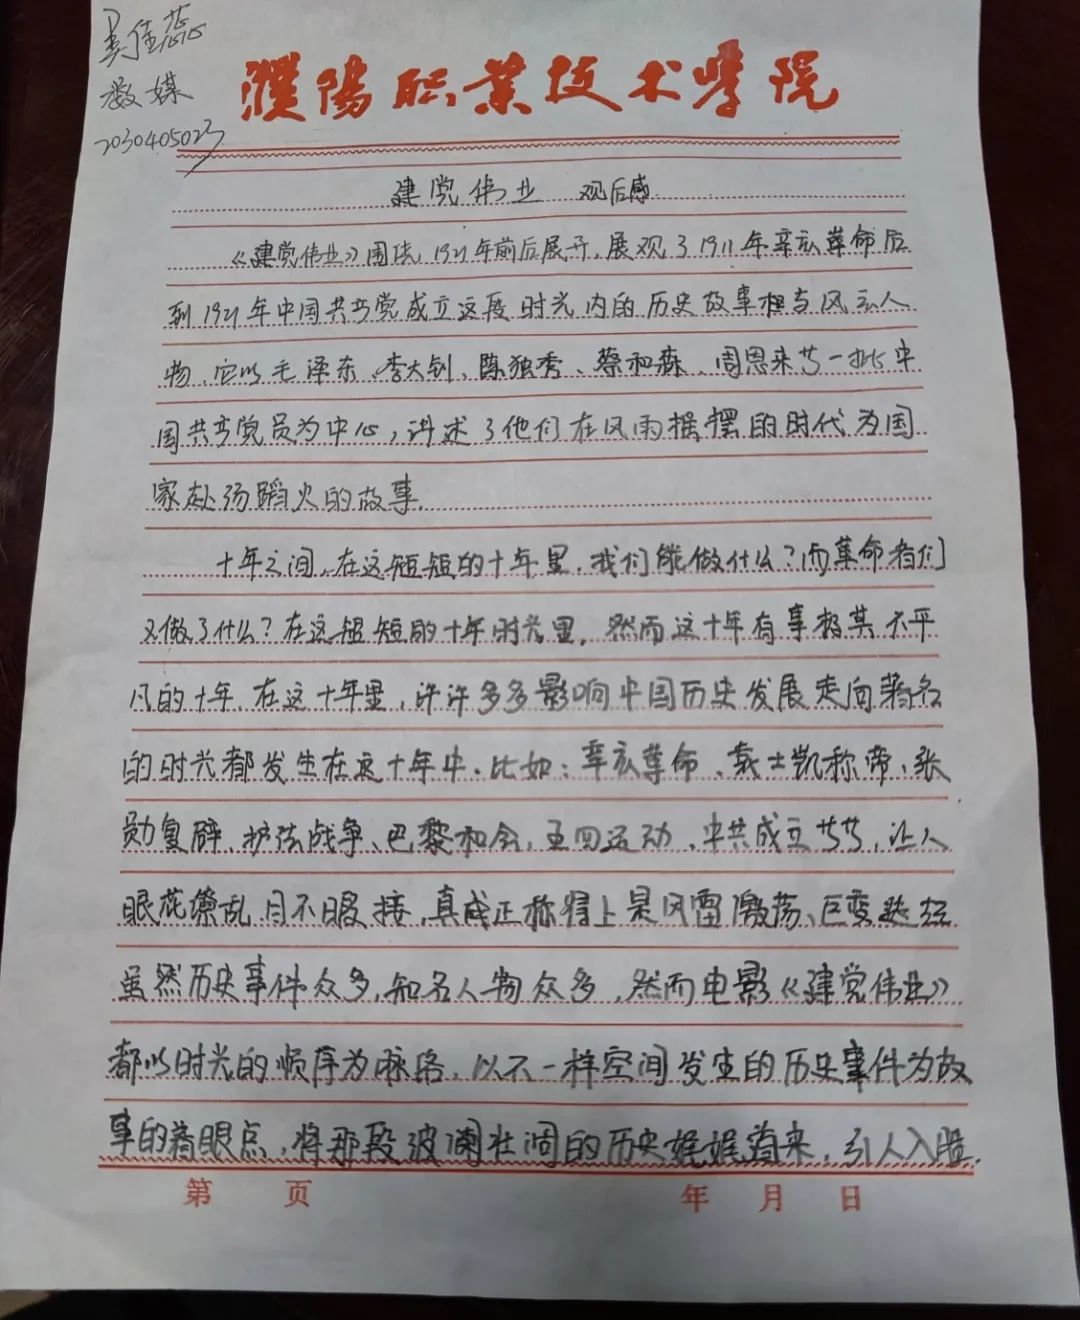 吴佳蕊
数媒
2030405023
濮阳职业技术学院
建党伟业 观后感
《建党伟业》围绕1921年前后展开,展观了1911年辛亥革命后
到1921年中国共产党成立这段时光内的历史故事相与风云人
物,它以毛泽东、李大钊、陈独秀、蔡和森、周恩来等一批中
国共产党员为中心,讲述了他们在风雨摇摆的时代为国
家赴汤蹈火的故事.
十年之间,在这短短的十年里,我们能做什么?而革命者们
又做了什么?在这短短的十年时光里,然而这十年有事极其不平
凡的十年,在这十年里,许许多多影响中国历史发展走向著名
的时光都发生在这十年中.比如:辛亥革命、袁士凯称帝、张
勋复辟、护法战争、巴黎和会,五四运动、中共成立等等,让人
眼花缭乱,目不暇接,真成正称得上是风雷激荡、巨变迭起
虽然历史事件众多,知名人物众多,然而电影《建党伟业》
都以时光的顺序为脉络,以不一样空间发生的历史事件为故
事的着眼点,将那段波澜壮阔的历史娓娓道来,引人入胜.
第 页 年 月 日